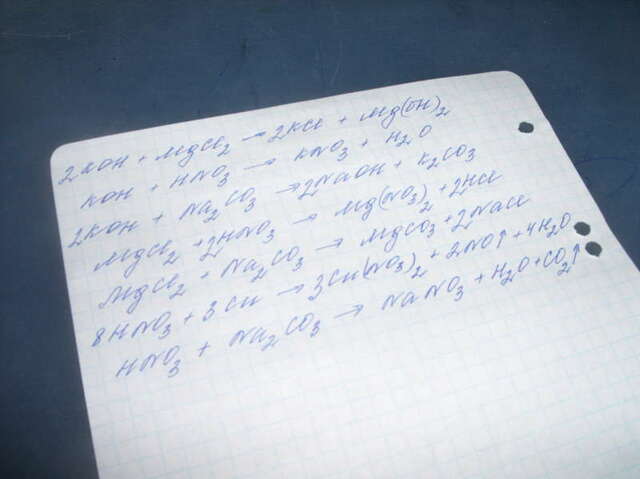 2KOH + MgCl2 → 2KCl + Mg(OH)2
KOH + HNO3 → KNO3 + H2O
2KOH + Na2CO3 → 2NaOH + K2CO3
MgCl2 + 2HNO3 → Mg(NO3)2 + 2HCl
MgCl2 + Na2CO3 → MgCO3 + 2NaCl
8HNO3 + 3Cu → 3Cu(NO3)2 + 2NO↑ + 4H2O
HNO3 + Na2CO3 → NaNO3 + H2O + CO2↑